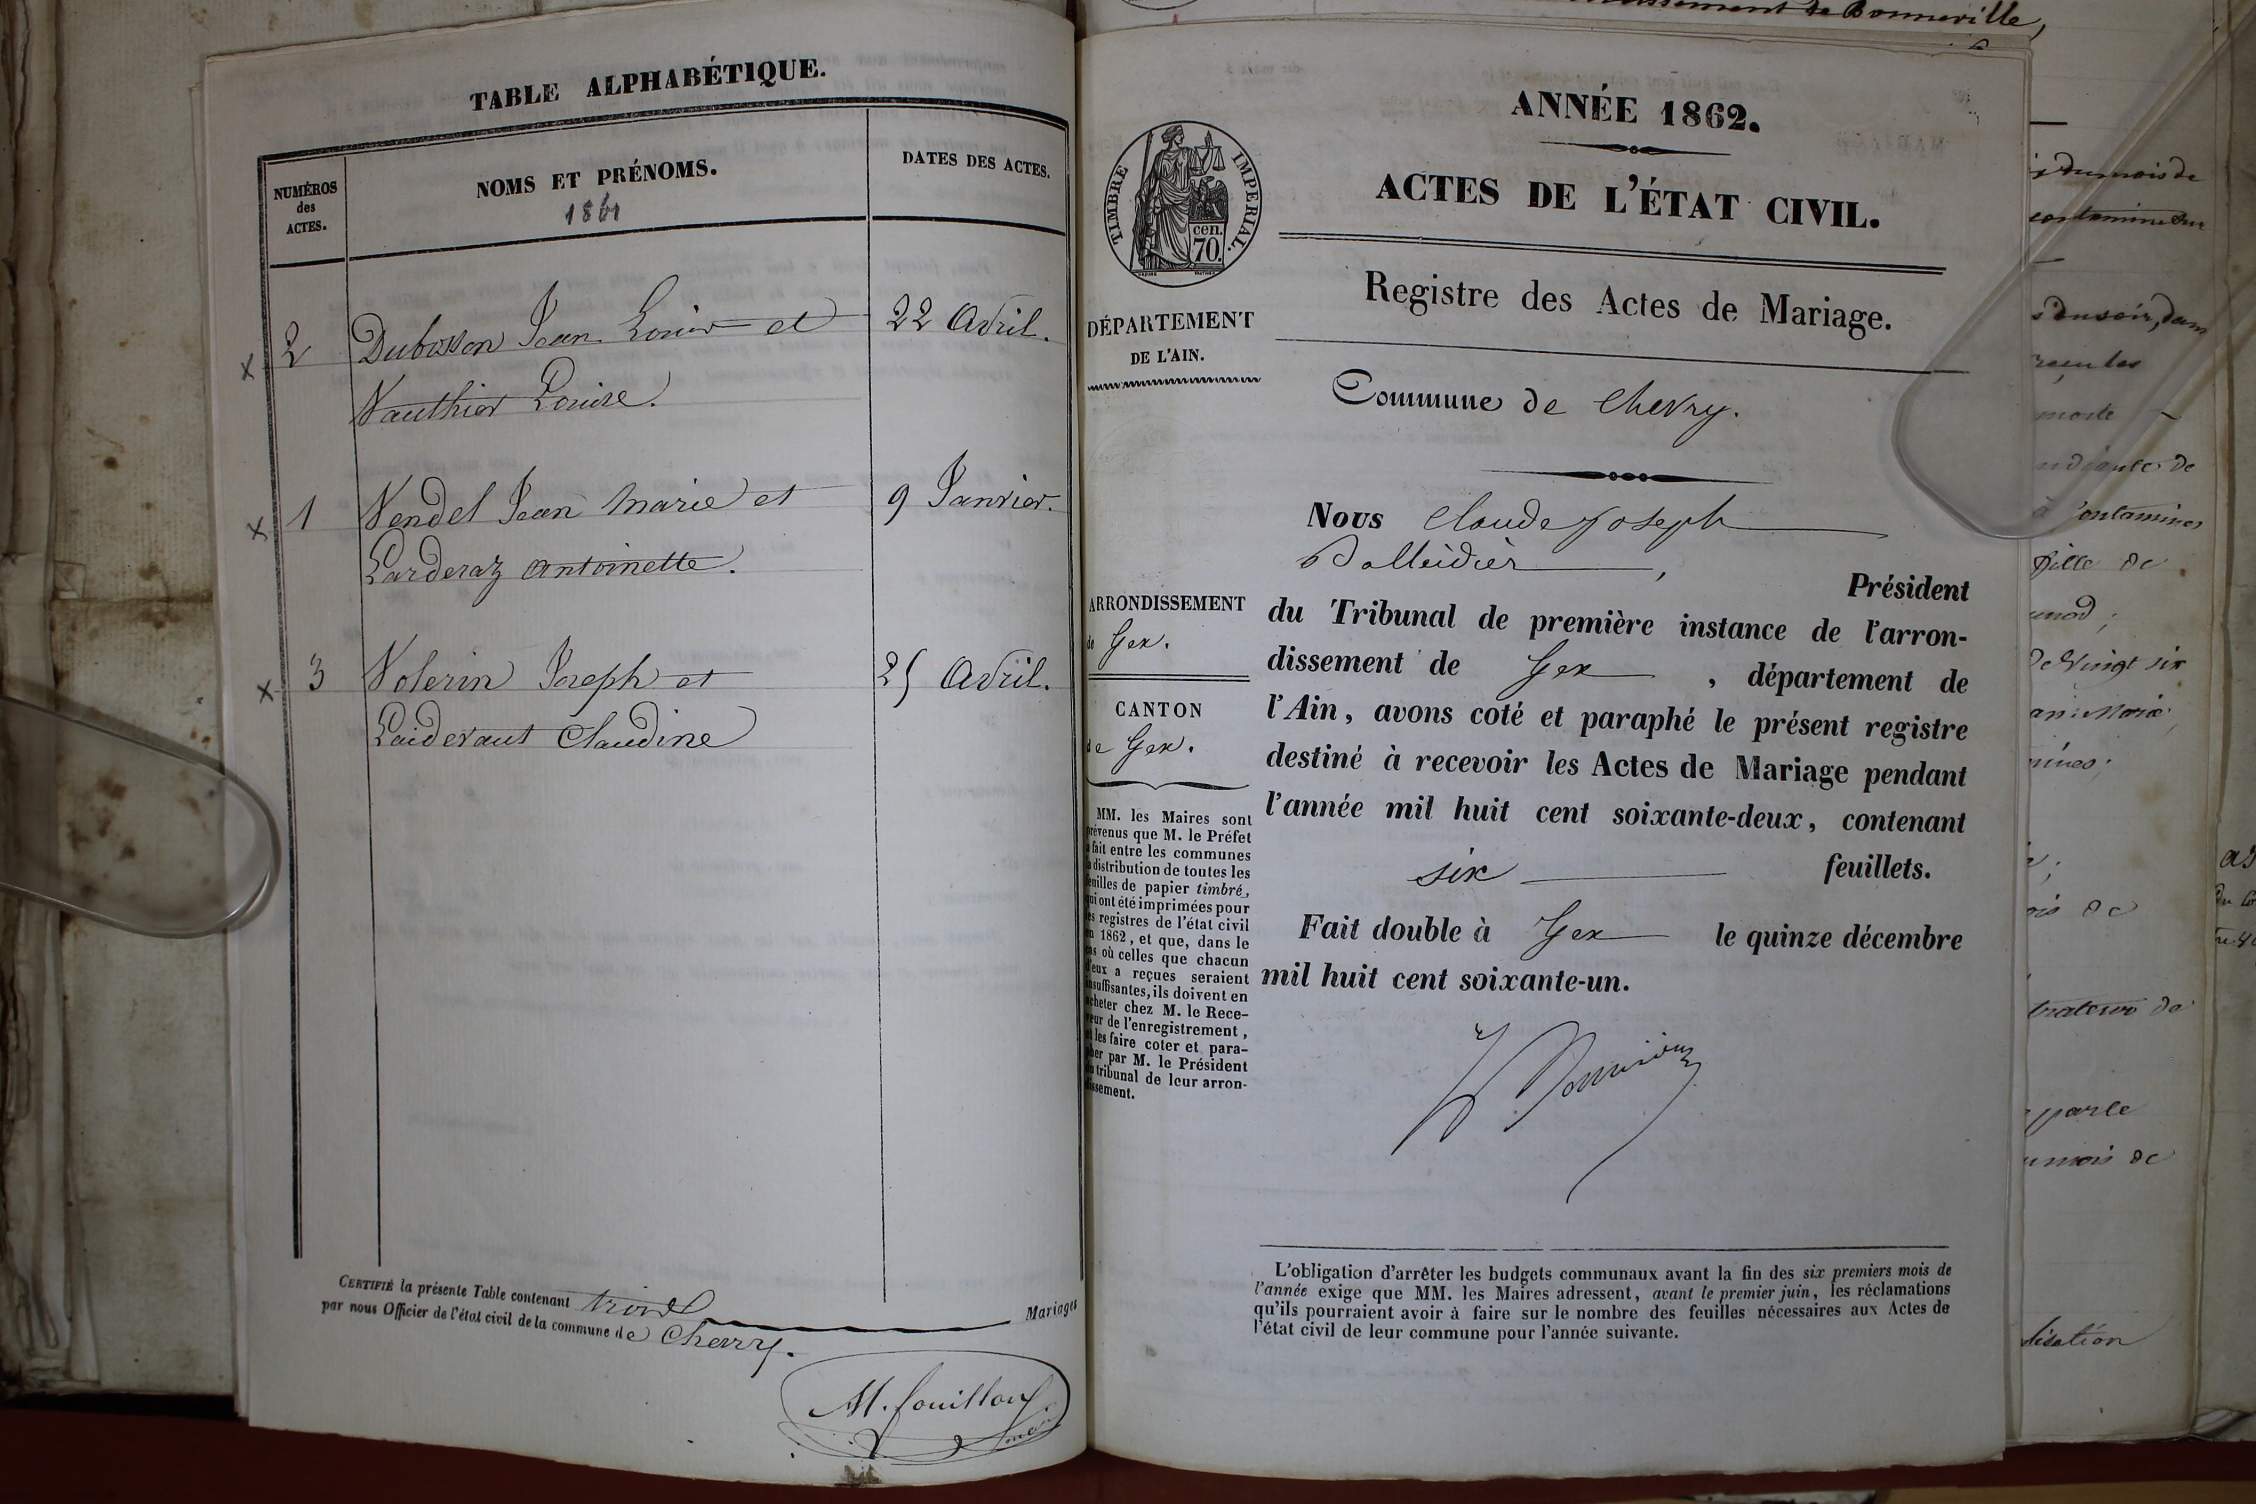 TABLE ALPHABÉTIQUE.
NUMÉROS
des
ACTES.
NOMS ET PRÉNOMS.
1861
DATES DES ACTES.
x 2 Dubosson Jean Louis et 22 Avril.
Vauthier Louise.
x 1 Vendel Jean Marie et 9 Janvier.
Larderaz Antoinette.
x 3 Volerin Joseph et 25 Avril.
Laideraut Claudine
CERTIFIÉ la présente Table contenant trois Mariages
par nous Officier de l'état civil de la commune de Chevry.
M. fouilloux
maire
ANNÉE 1862.
ACTES DE L'ÉTAT CIVIL.
TIMBRE IMPERIAL.
cen.
70.
Registre des Actes de Mariage.
DÉPARTEMENT
DE L'AIN.
Commune de Chevry.
ARRONDISSEMENT
de Gex.
CANTON
de Gex.
MM. les Maires sont
prévenus que M. le Préfet
a fait entre les communes
la distribution de toutes les
feuilles de papier timbré,
qui ont été imprimées pour
les registres de l'état civil
en 1862, et que, dans le
cas où celles que chacun
d'eux a reçues seraient
insuffisantes, ils doivent en
acheter chez M. le Rece-
veur de l'enregistrement,
et les faire coter et para-
pher par M. le Président
du tribunal de leur arron-
dissement.
Nous Claude Joseph
, Président
du Tribunal de première instance de l'arron-
dissement de Gex , département de
l'Ain, avons coté et paraphé le présent registre
destiné à recevoir les Actes de Mariage pendant
l'année mil huit cent soixante-deux, contenant
six feuillets.
Fait double à Gex le quinze décembre
mil huit cent soixante-un.
L'obligation d'arrêter les budgets communaux avant la fin des six premiers mois de
l'année exige que MM. les Maires adressent, avant le premier juin, les réclamations
qu'ils pourraient avoir à faire sur le nombre des feuilles nécessaires aux Actes de
l'état civil de leur commune pour l'année suivante.
de Bonneville,
du mois de
du soir, dans
reçu les
de
à Contamines
fille de
de Vingt six
Marie,
de
parle
mois de